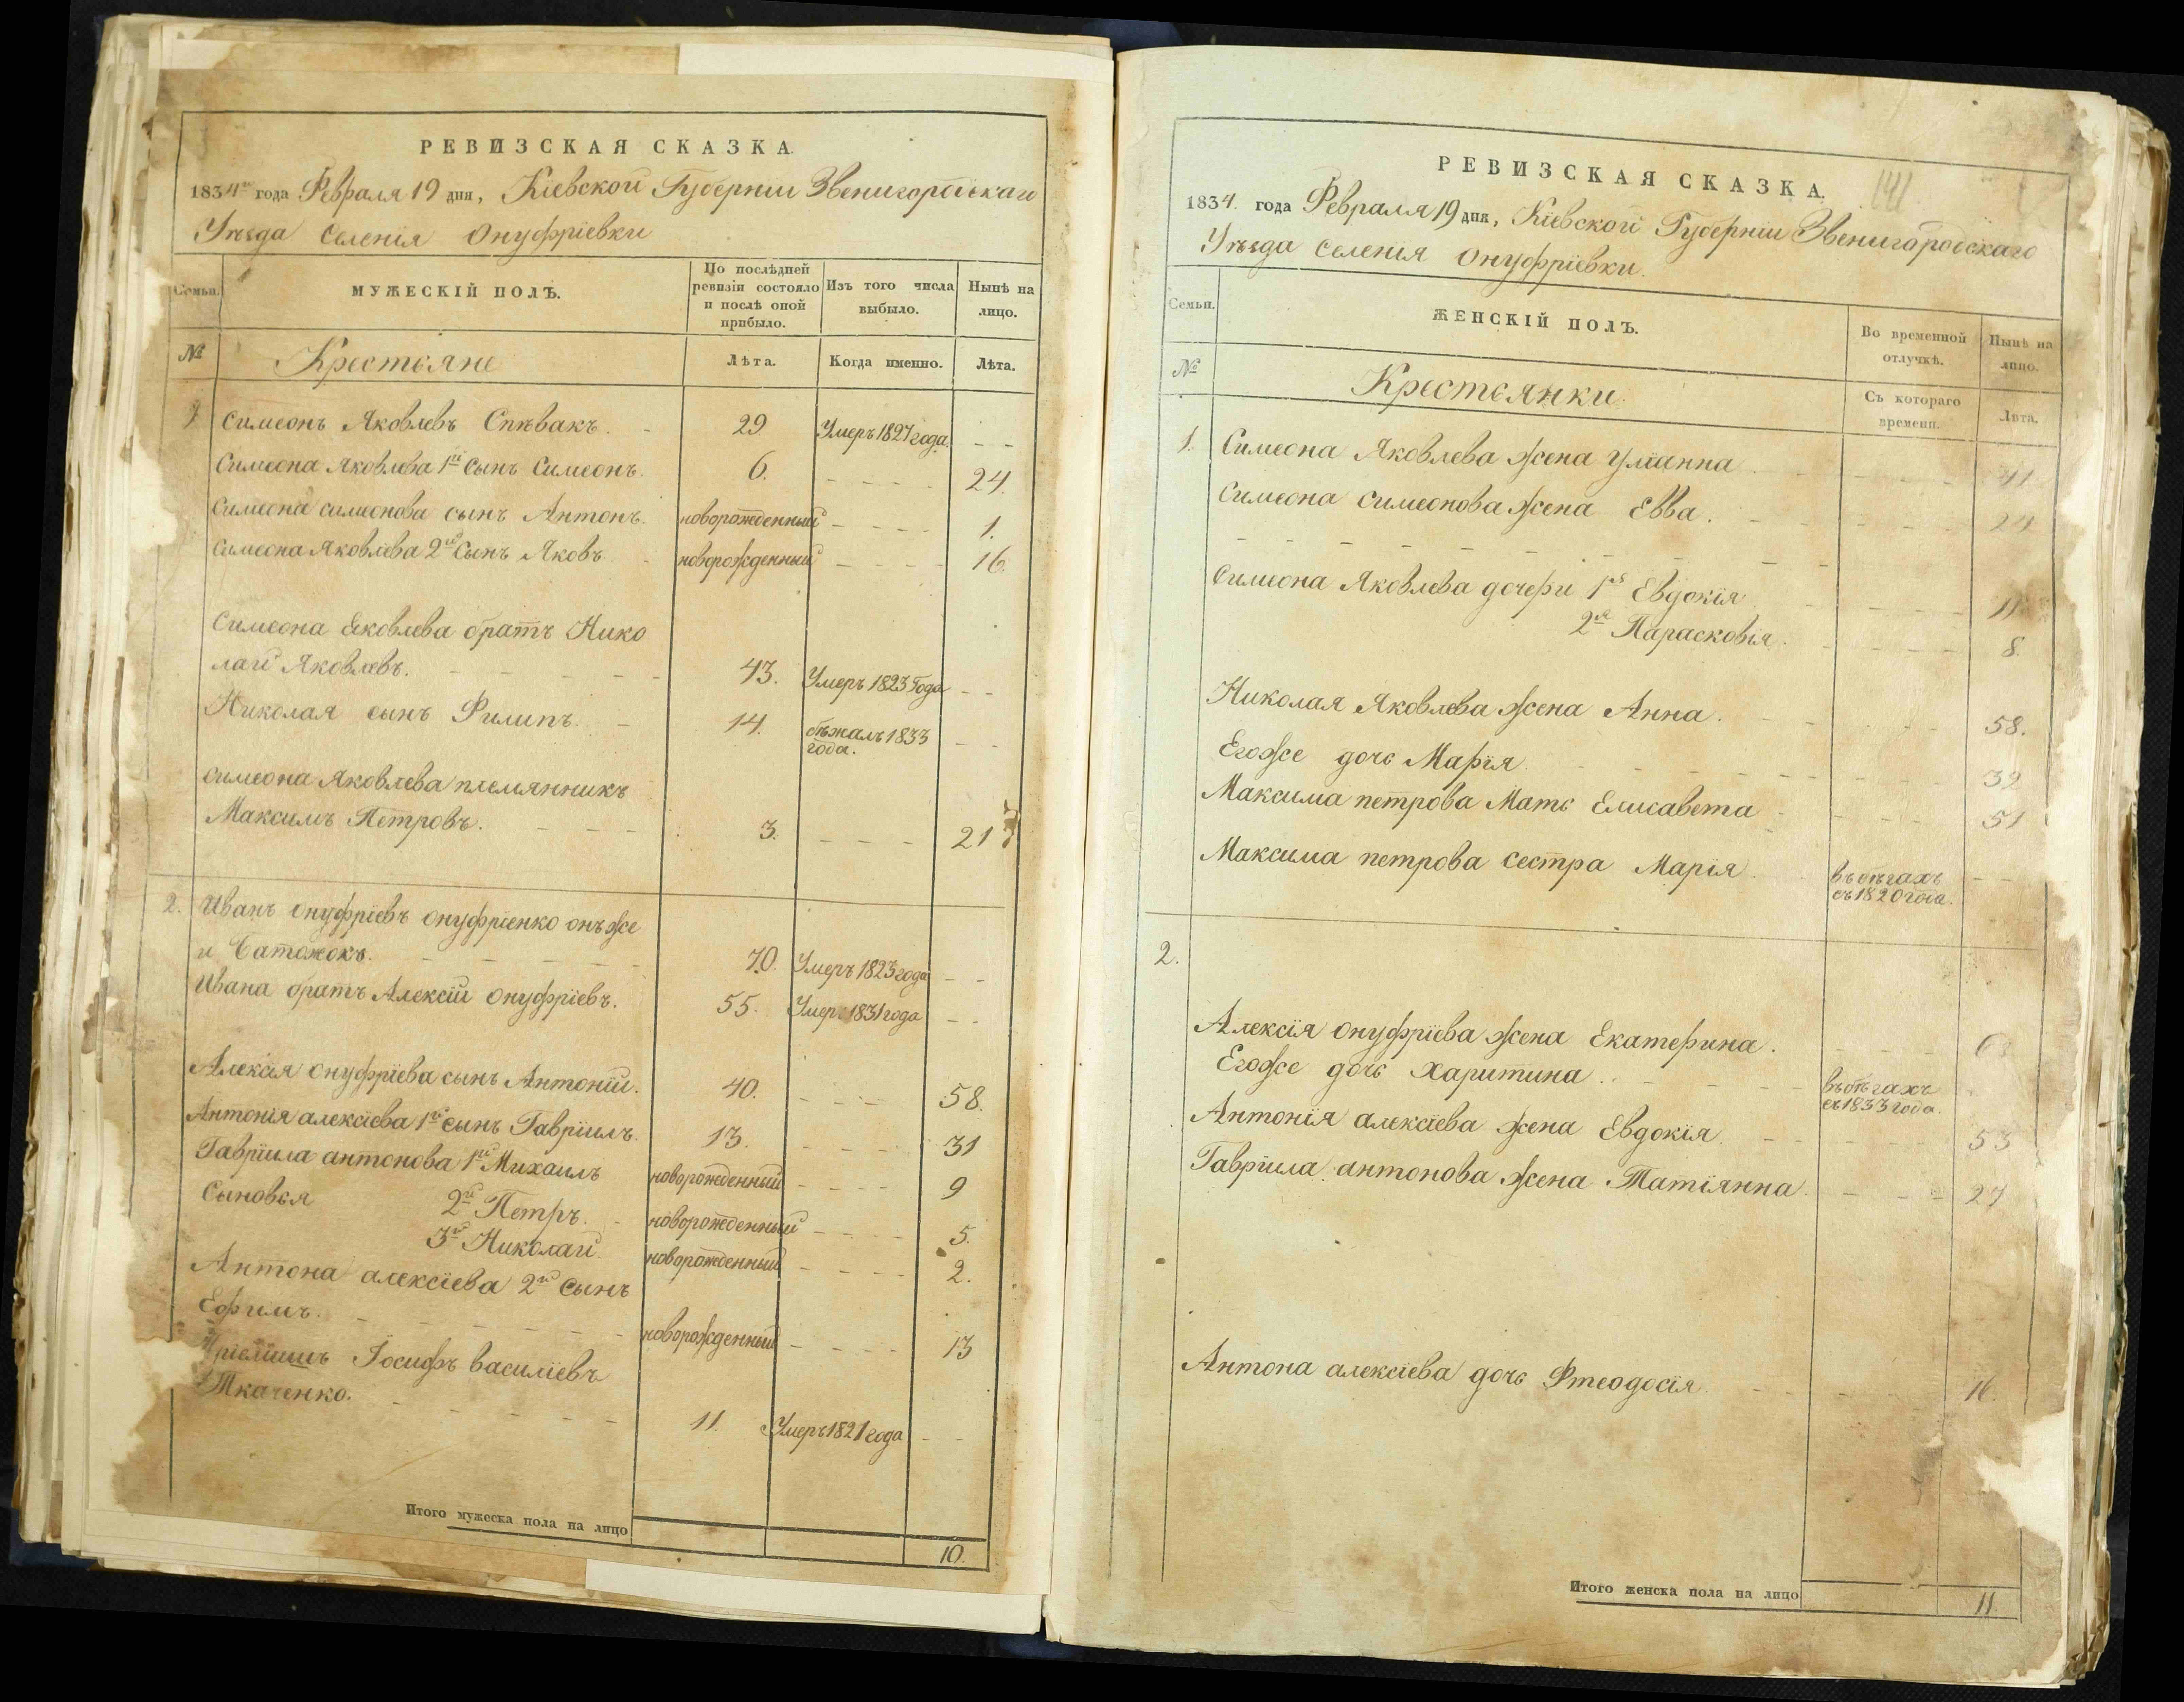 РЕВИЗСКАЯ СКАЗКА.
1834го года Февраля 19 дня, Кіевской Губерніи Звенигородскаго
Уѣзда Селенія Онуфріевки
Семьи.
МУЖЕСКІЙ ПОЛЪ.
По послѣдней ревизіи состояло и послѣ оной прибыло.
Изъ того числа выбыло.
Нынѣ на лицо.
№
Крестьяне
Лѣта.
Когда именно.
Лѣта.
1 Симеонъ Яковлевъ Спѣвакъ. - 29 Умеръ 1827 года. - -
Симеона Яковлева 1й сынъ Симеонъ. 6. - - - - 24.
Симеона симеонова сынъ Антонъ. новорожденный - - - - 1.
Симеона Яковлева 2й сынъ Яковъ - новорожденный - - - - 16.
Симеона Яковлева братъ Нико
лай Яковлевъ. - - - - - 43. Умеръ 1823 года - -
Николая сынъ Филипъ. - 14. бѣжалъ 1833 - -
года.
Симеона Яковлева племянникъ
Максимъ Петровъ. - - - 3. - - - 21
2. Иванъ Онуфріевъ Онуфріенко онъ же
и Батожокъ. - - - - - 70. Умеръ 1823 года - -
Ивана братъ Алексій Онуфріевъ. 55. Умер. 1831 года - -
Алексія Онуфріева сынъ Антоній. 40. - - - 58.
Антонія алексіева 1й сынъ Гавріилъ. 13. - - - - 31
Гавріила антонова 1й Михаилъ новорожденный - - - - 9
Сыновья 2й Петръ. - новорожденный - - - - 5.
3й Николай. новорожденный - - - - 2.
Антона алексіева 2й сынъ
Ефимъ. - - - - - - новорожденный - - - - 13
Пріемышъ Іосифъ Василіевъ
Ткаченко. - - - - - 11. Умеръ 1821 года - -
Итого мужеска пола на лицо
10.
РЕВИЗСКАЯ СКАЗКА.
141
1834. года Февраля 19 дня, Кіевской Губерніи Звенигородскаго
Уѣзда Селенія Онуфріевки.
Семьи.
ЖЕНСКІЙ ПОЛЪ.
Во временной отлучкѣ.
Нынѣ на лицо.
№
Крестьянки
Съ котораго времени.
Лѣта.
1. Симеона Яковлева жена Уліанна - - - - 41
Симеона симеонова жена Евва. - - - - 24
Симеона Яковлева дочери 1я Евдокія - - - - 11
2я Парасковія. - - - - 8.
Николая Яковлева жена Анна. - - - - 58.
Егоже дочь Марія. - - - - 39
Максима петрова Мать Елисавета - - - - 51
Максима петрова сестра Марія въ бѣгахъ - -
съ 1820 года.
2.
Алексія онуфріева жена Екатерина. - - - 63
Егоже дочь Харитина. - - - въ бѣгахъ
съ 1833 года.
Антонія алексіева жена Евдокія - - - - 53
Гавріила антонова жена Татіянна. - - - 27
Антона алексіева дочь Фтеодосія. - - - - 16.
Итого женска пола на лицо
11.